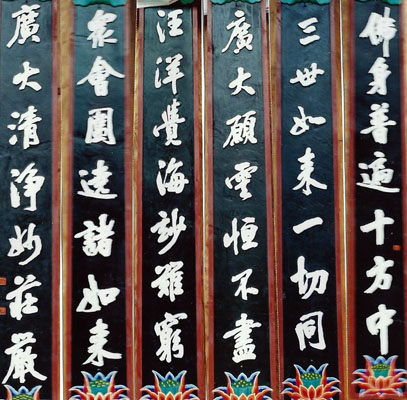 佛身普遍十方中
三世如來一切同
廣大願雲恒不盡
汪洋覺海渺難窮
衆會圍遶諸如來
廣大清淨妙莊嚴